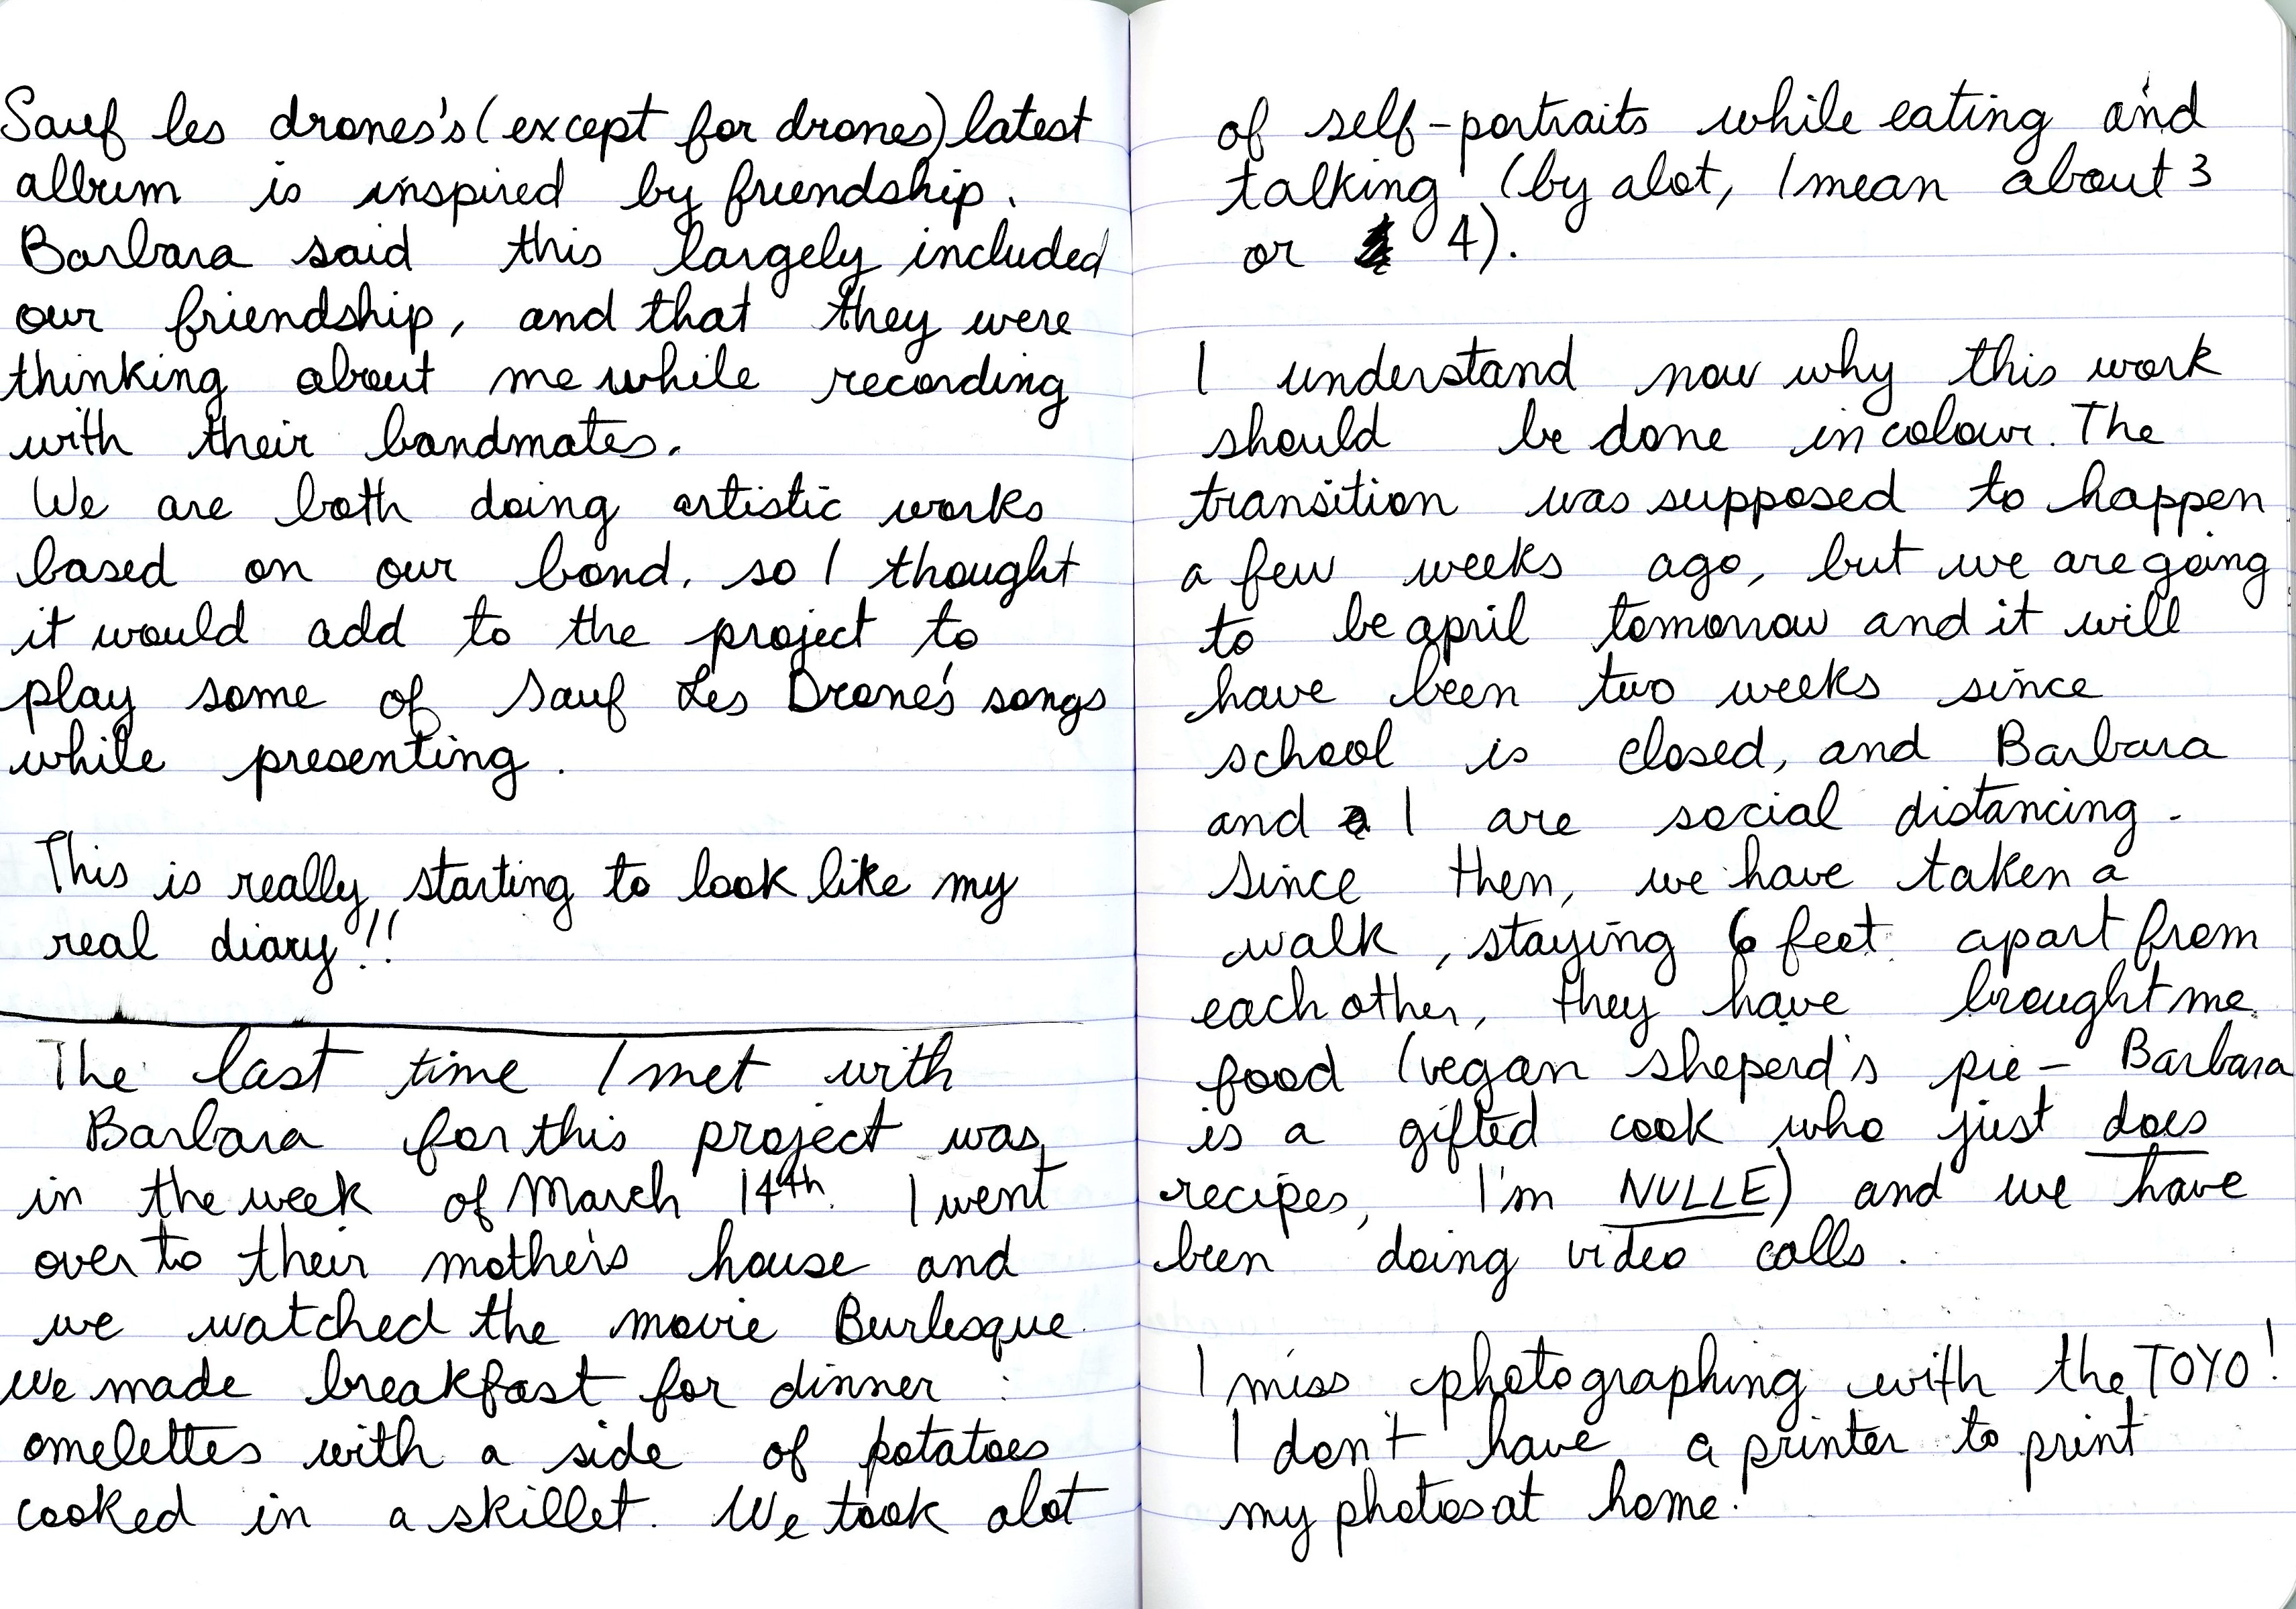 Sauf les drones's (except for drones) latest
album is inspired by friendship.
Barbara said this largely included
our friendship, and that they were
thinking about me while recording
with their bandmates.
We are both doing artistic works
based on our bond, so I thought
it would add to the project to
play some of Sauf Les Drone's songs
while presenting.
This is really starting to look like my
real diary!!
The last time I met with
Barbara for this project was
in the week of March 14th. I went
over to their mother's house and
we watched the movie Burlesque.
We made breakfast for dinner :
omelettes with a side of potatoes
cooked in a skillet. We took alot
of self-portraits while eating and
talking (by alot, I mean about 3
or 4).
I understand now why this work
should be done in colour. The
transition was supposed to happen
a few weeks ago, but we are going
to be april tomorrow and it will
have been two weeks since
school is closed, and Barbara
and I are social distancing.
Since then, we have taken a
walk, staying 6 feet apart from
each other, they have brought me
food (vegan sheperd's pie - Barbara
is a gifted cook who just does
recipes, I'm NULLE) and we have
been doing video calls.
I miss photographing with the TOYO!
I don't have a printer to print
my photos at home.